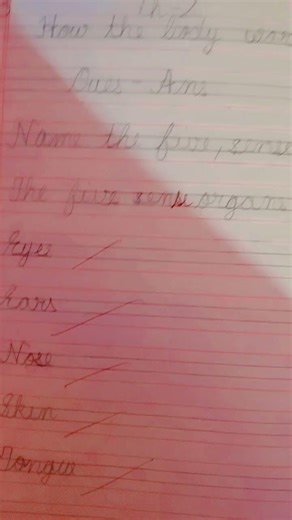 Ch-2
How the body wor
Ques - Ans
Name the five, sense
The five sense organs
Eyes
Ears
Nose
Skin
Tongue